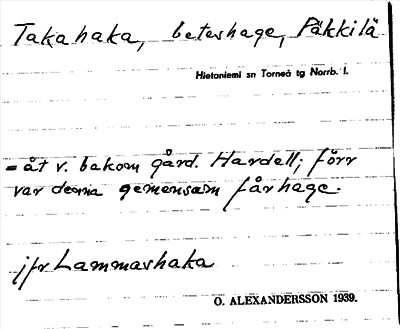 Takahaka, beteshage, Päkkilä
Hietaniemi sn Torneå tg Norrb. l.
- åt v. bakom gård. Hardell; förr
var denna gemensam fårhage.
jfr Lammashaka
O. ALEXANDERSSON 1939.